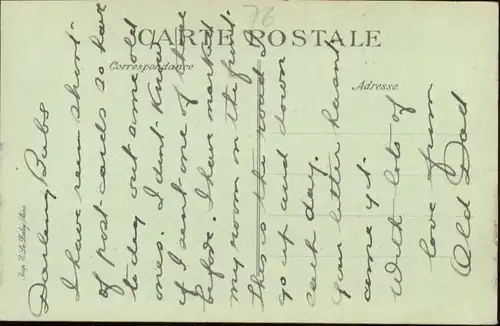 76
CARTE POSTALE
Correspondance
Adresse
Darling Babs
I have run short
of post-cards so have
to day out some old
ones. I dont know
if I sent one of these
before. I have marked
my room on the front.
This is the road I
go up and down
each day.
Your letter hasnt
come yet.
With lots of
love from
Old Dad